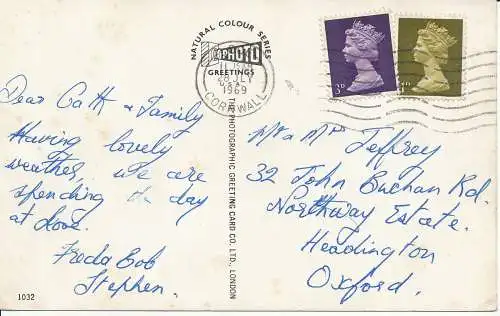 NATURAL COLOUR SERIES
PHOTO
GREETINGS
28 JLY
1969
CORNWALL
3D
1D
Dear Cath & Family
Having lovely
weather, we are
spending the day
at Looe.
Freda Bob
Stephen.
1032
THE PHOTOGRAPHIC GREETING CARD CO. LTD., LONDON
Mr & Mrs Jeffrey
32 John Buchan Rd.
Northway Estate.
Headington
Oxford.